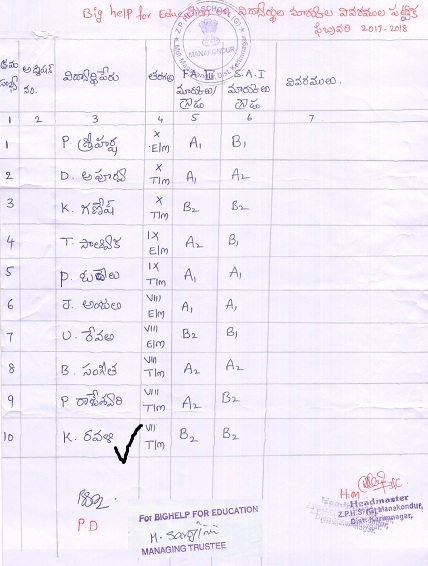 Big help for Education లో విద్యార్థుల మార్కుల వివరముల పట్టిక
ఫిబ్రవరి 2017-2018
Z.P.H. SCHOOL (G)
MANAKONDUR
క్రమ సంఖ్య అడ్మిషన్ నం. విద్యార్థి పేరు తరగతి F.A III మార్కులు/గ్రేడు S.A.I మార్కులు గ్రేడు వివరములు.
1 2 3 4 5 6 7
1 P. శ్రీహర్ష X E/m A1 B1
2 D. అపూర్వ X T/m A1 A2
3 K. గణేష్ X T/m B2 B2
4 T. సాత్విక IX E/m A2 B1
5 P. IX T/m A1 A1
6 J. అంజలి VIII E/m A1 A1
7 U. రేవతి VIII E/m B2 B1
8 B. సంగీత VIII T/m A2 A2
9 P. రాజేశ్వరి VIII T/m A2 B2
10 K. రవళి VII T/m B2 B2
P.D
For BIGHELP FOR EDUCATION
MANAGING TRUSTEE
H.m
Headmaster
Z.P.H.S (G) Manakondur,
Dist. Karimnagar,